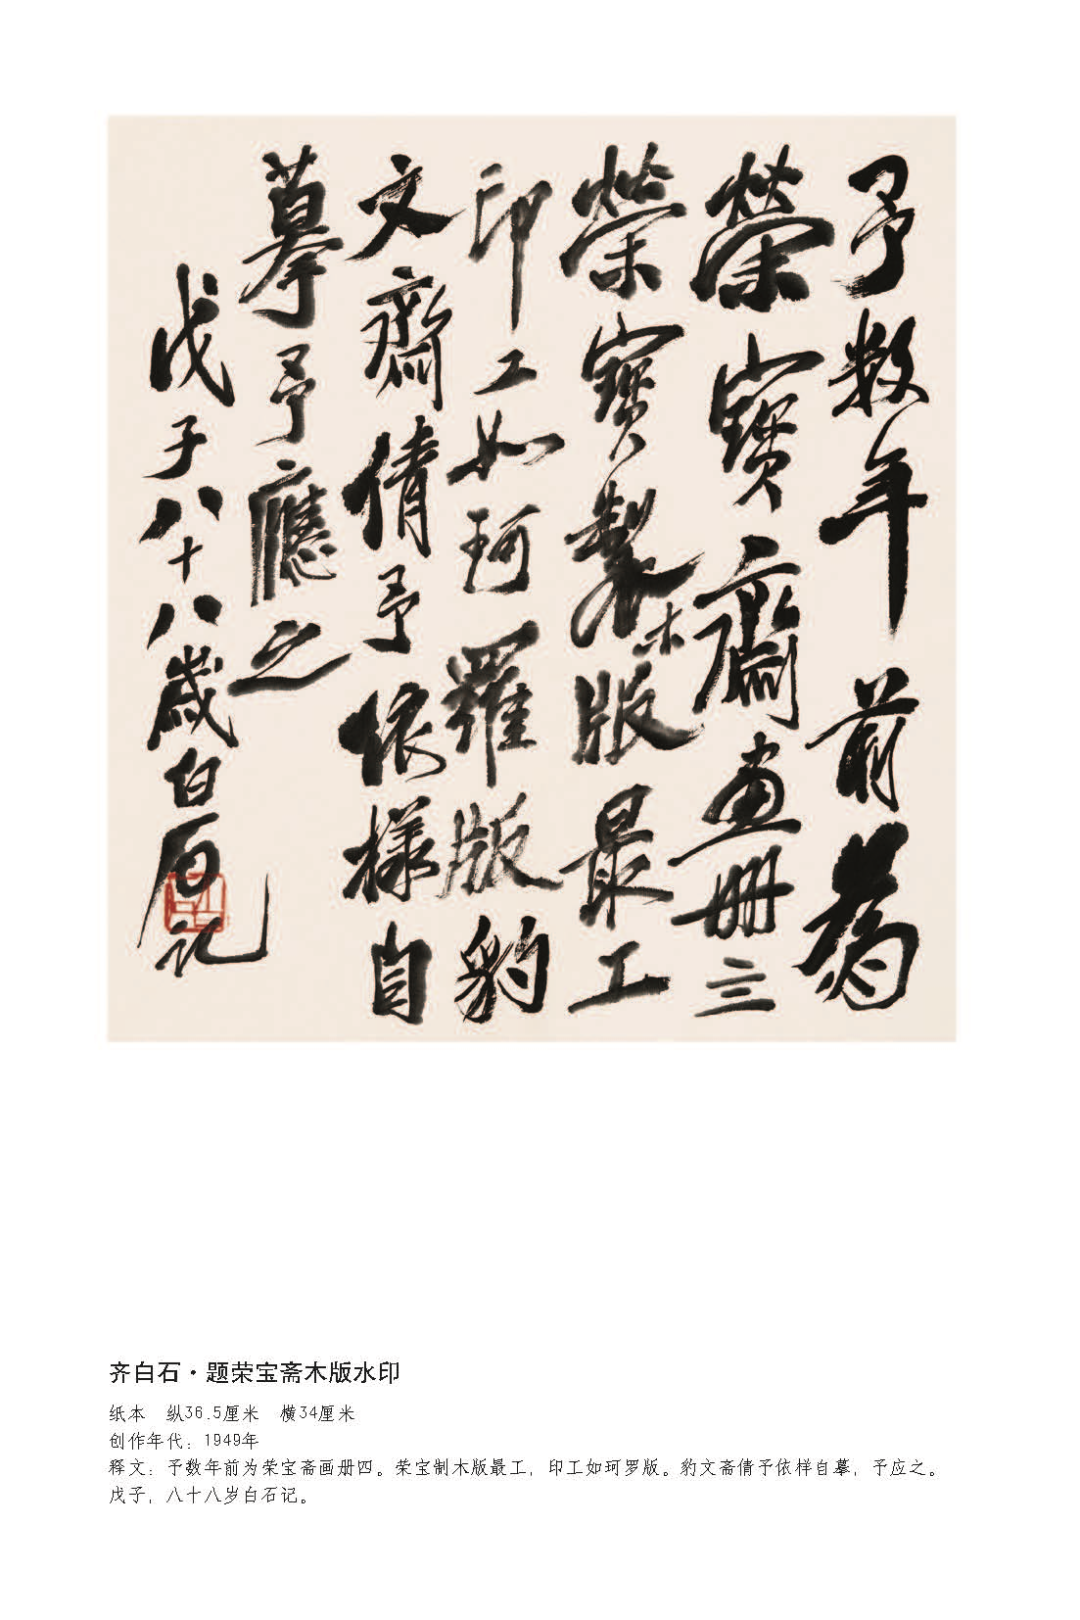 予數年前為
榮寶齋畫册亖
榮寶製木版最工
印工如珂羅版豹
文齋倩予依樣自
摹予應之
戊子八十八歲白石記
齐白石·题荣宝斋木版水印
纸本 纵36.5厘米 横34厘米
创作年代：1949年
释文：予数年前为荣宝斋画册四。荣宝制木版最工，印工如珂罗版。豹文斋倩予依样自摹，予应之。
戊子，八十八岁白石记。